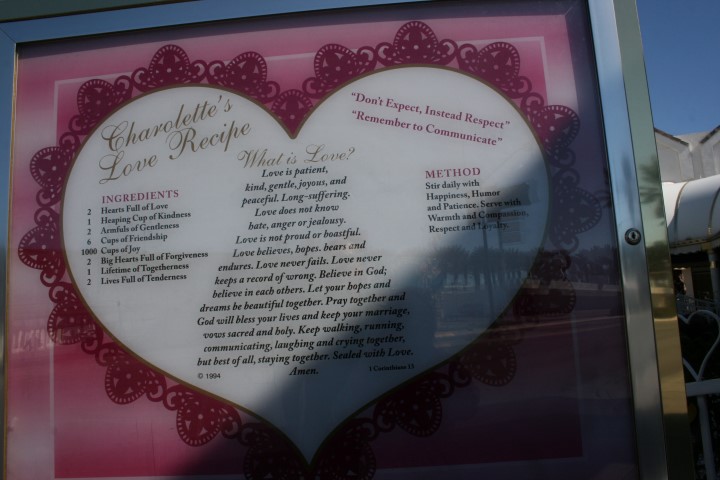 Charolette's
Love Recipe
"Don't Expect, Instead Respect"
"Remember to Communicate"
What is Love?
INGREDIENTS
2 Hearts Full of Love
1 Heaping Cup of Kindness
2 Armfuls of Gentleness
6 Cups of Friendship
1000 Cups of Joy
2 Big Hearts Full of Forgiveness
1 Lifetime of Togetherness
2 Lives Full of Tenderness
Love is patient,
kind, gentle, joyous, and
peaceful. Long-suffering.
Love does not know
hate, anger or jealousy.
Love is not proud or boastful.
Love believes, hopes. bears and
endures. Love never fails. Love never
keeps a record of wrong. Believe in God;
believe in each others. Let your hopes and
dreams be beautiful together. Pray together and
God will bless your lives and keep your marriage,
vows sacred and holy. Keep walking, running,
communicating, laughing and crying together,
but best of all, staying together. Sealed with Love.
Amen.
1 Corinthians 13
© 1994
METHOD
Stir daily with
Happiness, Humor
and Patience. Serve with
Warmth and Compassion,
Respect and Loyalty.